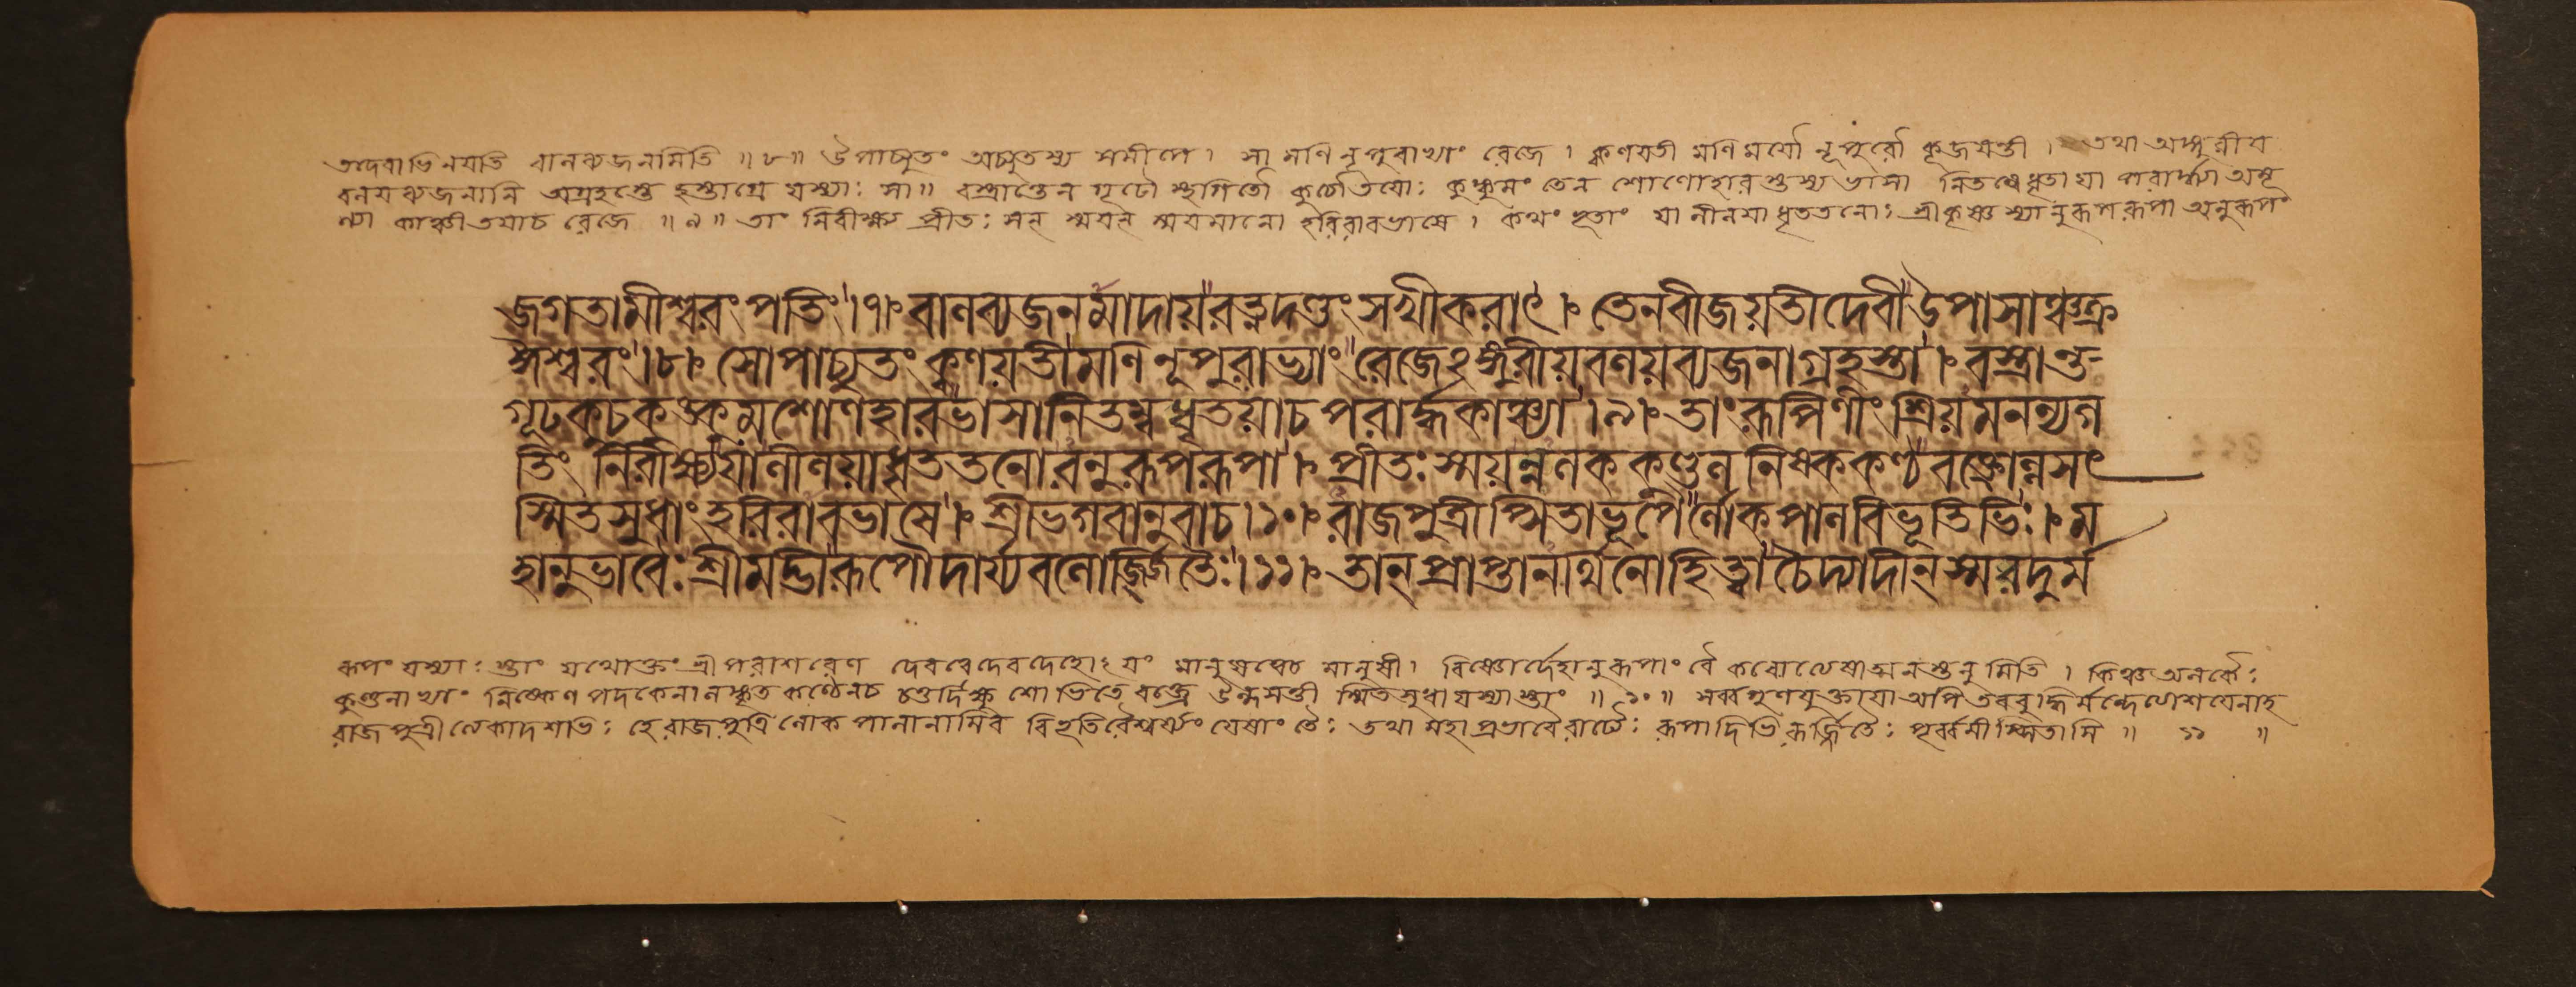 তদেবাভিনয়তি বালব্যজনমিতি ॥ ৮॥ উপাচ্যুতং অচ্যুতস্য সমীপে। সা মণিনূপুরাভ্যাং রেজে। ক্বণয়তী মণিময়ৌ নূপুরৌ কূজয়ন্তী। তথা অঙ্গুরীয়
বলয়ব্যজনানি অগ্রহস্তে হস্তাগ্রে যস্যাঃ সা॥ বস্ত্রান্তেন গূঢৌ স্থগিতৌ কুচৌ তয়োঃ কুঙ্কুমং তেন শোণোহারস্তস্য ভাসা নিতম্বেধৃতায়া পরার্দ্ধ্যা অমূ
ল্যা কাঞ্চীতয়াচ রেজে ॥ ৯॥ তাং নিরীক্ষ্য প্রীতঃ সন্ স্ময়ন্ স্ময়মানো হরিরাবভাষে। কথং ভূতাং যা লীলয়াধৃততনোঃ শ্রীকৃষ্ণস্যানুরূপরূপা অনুরূপং
জগতামীশ্বরংপতিং।৭। বালব্যজনমাদায়রত্নদণ্ডং সখীকরাৎ। তেনবীজয়তীদেবীউপাসাঞ্চক্র
ঈশ্বরং।৮। সোপাচ্যুতং ক্বণয়তীমণিনূপুরাভ্যাং রেজেঽঙ্গুরীয়বলয়ব্যজনাগ্রহস্তা। বস্ত্রান্ত-
গূঢকুচকুঙ্কুমশোণহারভাসানিতম্বধৃতয়াচপরার্দ্ধ্যকাঞ্চ্যা।৯। তাংরূপিণীং শ্রিয়মনন্যগ
তিং নিরীক্ষ্যয়ালীলয়াধৃততনোরনুরূপরূপা। প্রীতঃ স্ময়ন্নলককুণ্ডলনিষ্ককণ্ঠবক্ত্রোল্লসৎ
স্মিতসুধাং হরিরাবভাষে। শ্রীভগবানুবাচ।১০। রাজপুত্রীপ্সিতাভূপৈর্লোকপালবিভূতিভিঃ। ম
হানুভাবৈঃ শ্রীমদ্ভীরূপৌদার্য্যবলোর্জ্জিতৈঃ।১১। তান্প্রাপ্তানর্থিনোহিত্বা চৈদ্যাদীন্স্মরদুর্ম
রূপং যস্যাঃ স্তাং যথোক্তং শ্রীপরাশরেণ দেবত্বেদেবদেহোঽয়ং মানুষত্বেচ মানুষী। বিষ্ণোর্দেহানুরূপাং বৈ করোত্যেষাত্মনস্তনুমিতি। কিঞ্চ অলকৈঃ
কুণ্ডলাভ্যাং নিষ্কেণ পদকেনালঙ্কৃত কণ্ঠেনচ চতুর্দিক্ষু শোভিতে বক্ত্রে উল্লসন্তী স্মিতসুধাযস্যাস্তাং ॥ ১০॥ সর্ব্বগুণযুক্তায়াঅপি তববুদ্ধির্মন্দেত্যাশয়েনাহ
রাজপুত্রীত্যেকাদশভিঃ হে রাজপুত্রি লোকপালানামিব বিভূতিরৈশ্বর্য্যং যেষাং তৈঃ তথা মহাপ্রভাবৈরাঢ্যৈঃ রূপাদিভিরূর্জ্জিতৈঃ পূর্ব্বমীপ্সিতাসি ॥ ১১ ॥